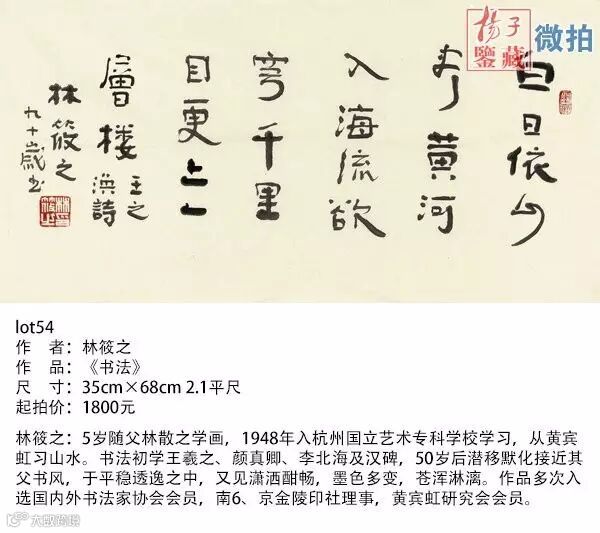 揚子
鑒藏
微拍
白日依山
尽黄河
入海流欲
穷千里
目更上一
層楼
王之
渙詩
林筱之
九十歲书
lot54
作 者：林筱之
作 品：《书法》
尺 寸：35cm×68cm 2.1平尺
起拍价：1800元
林筱之：5岁随父林散之学画，1948年入杭州国立艺术专科学校学习，从黄宾
虹习山水。书法初学王羲之、颜真卿、李北海及汉碑，50岁后潜移默化接近其
父书风，于平稳透逸之中，又见潇洒酣畅，墨色多变，苍浑淋漓。作品多次入
选国内外书法家协会会员，南6、京金陵印社理事，黄宾虹研究会会员。
大数跨境